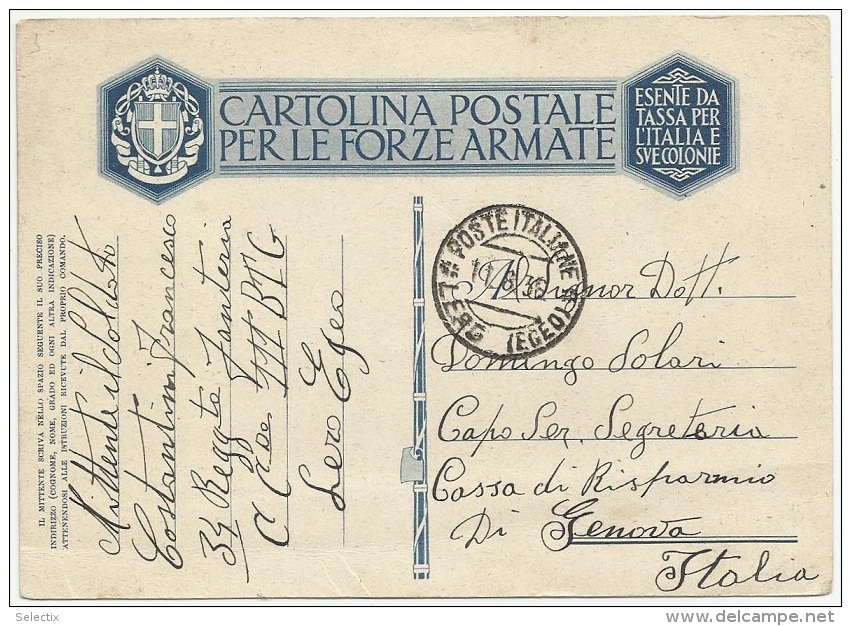 CARTOLINA POSTALE
PER LE FORZE ARMATE
ESENTE DA
TASSA PER
L'ITALIA E
SVE COLONIE
IL MITTENTE SCRIVA NELLO SPAZIO SEGUENTE IL SUO PRECISO
INDIRIZZO (COGNOME, NOME, GRADO ED OGNI ALTRA INDICAZIONE)
ATTENENDOSI ALLE ISTRUZIONI RICEVUTE DAL PROPRIO COMANDO.
Mittente il Soldato
Costantini Francesco
34 Reggto Fanteria
C C III BTG
Lero Egeo
POSTE ITALIANE
LERO (EGEO)
Al Signor Dott.
Domingo Solari
Capo Ser. Segreteria
Cassa di Risparmio
Di Genova
Italia
Selectix
delcampe.net